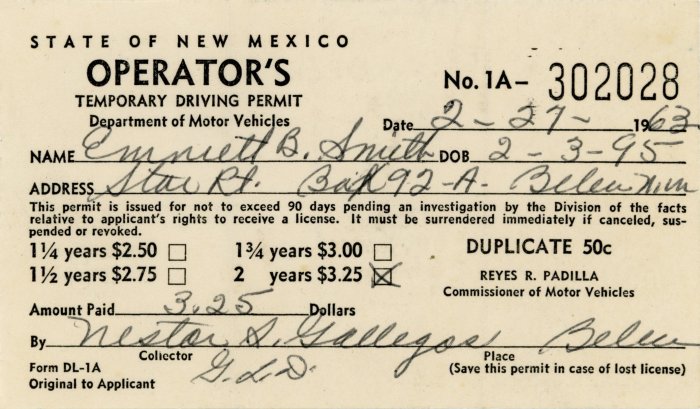 STATE OF NEW MEXICO
OPERATOR'S
TEMPORARY DRIVING PERMIT
Department of Motor Vehicles
No. 1A- 302028
Date 2-27-1963
NAME Emmett B. Smith DOB 2-3-95
ADDRESS Star Rt. Box 92-A- Belen N.M.
This permit is issued for not to exceed 90 days pending an investigation by the Division of the facts
relative to applicant's rights to receive a license. It must be surrendered immediately if canceled, sus-
pended or revoked.
1¼ years $2.50 1¾ years $3.00 DUPLICATE 50c
1½ years $2.75 2 years $3.25 REYES R. PADILLA
Commissioner of Motor Vehicles
Amount Paid 3.25 Dollars
By Nestor S. Gallegos Belen
Collector Place
Form DL-1A G.L.D. (Save this permit in case of lost license)
Original to Applicant